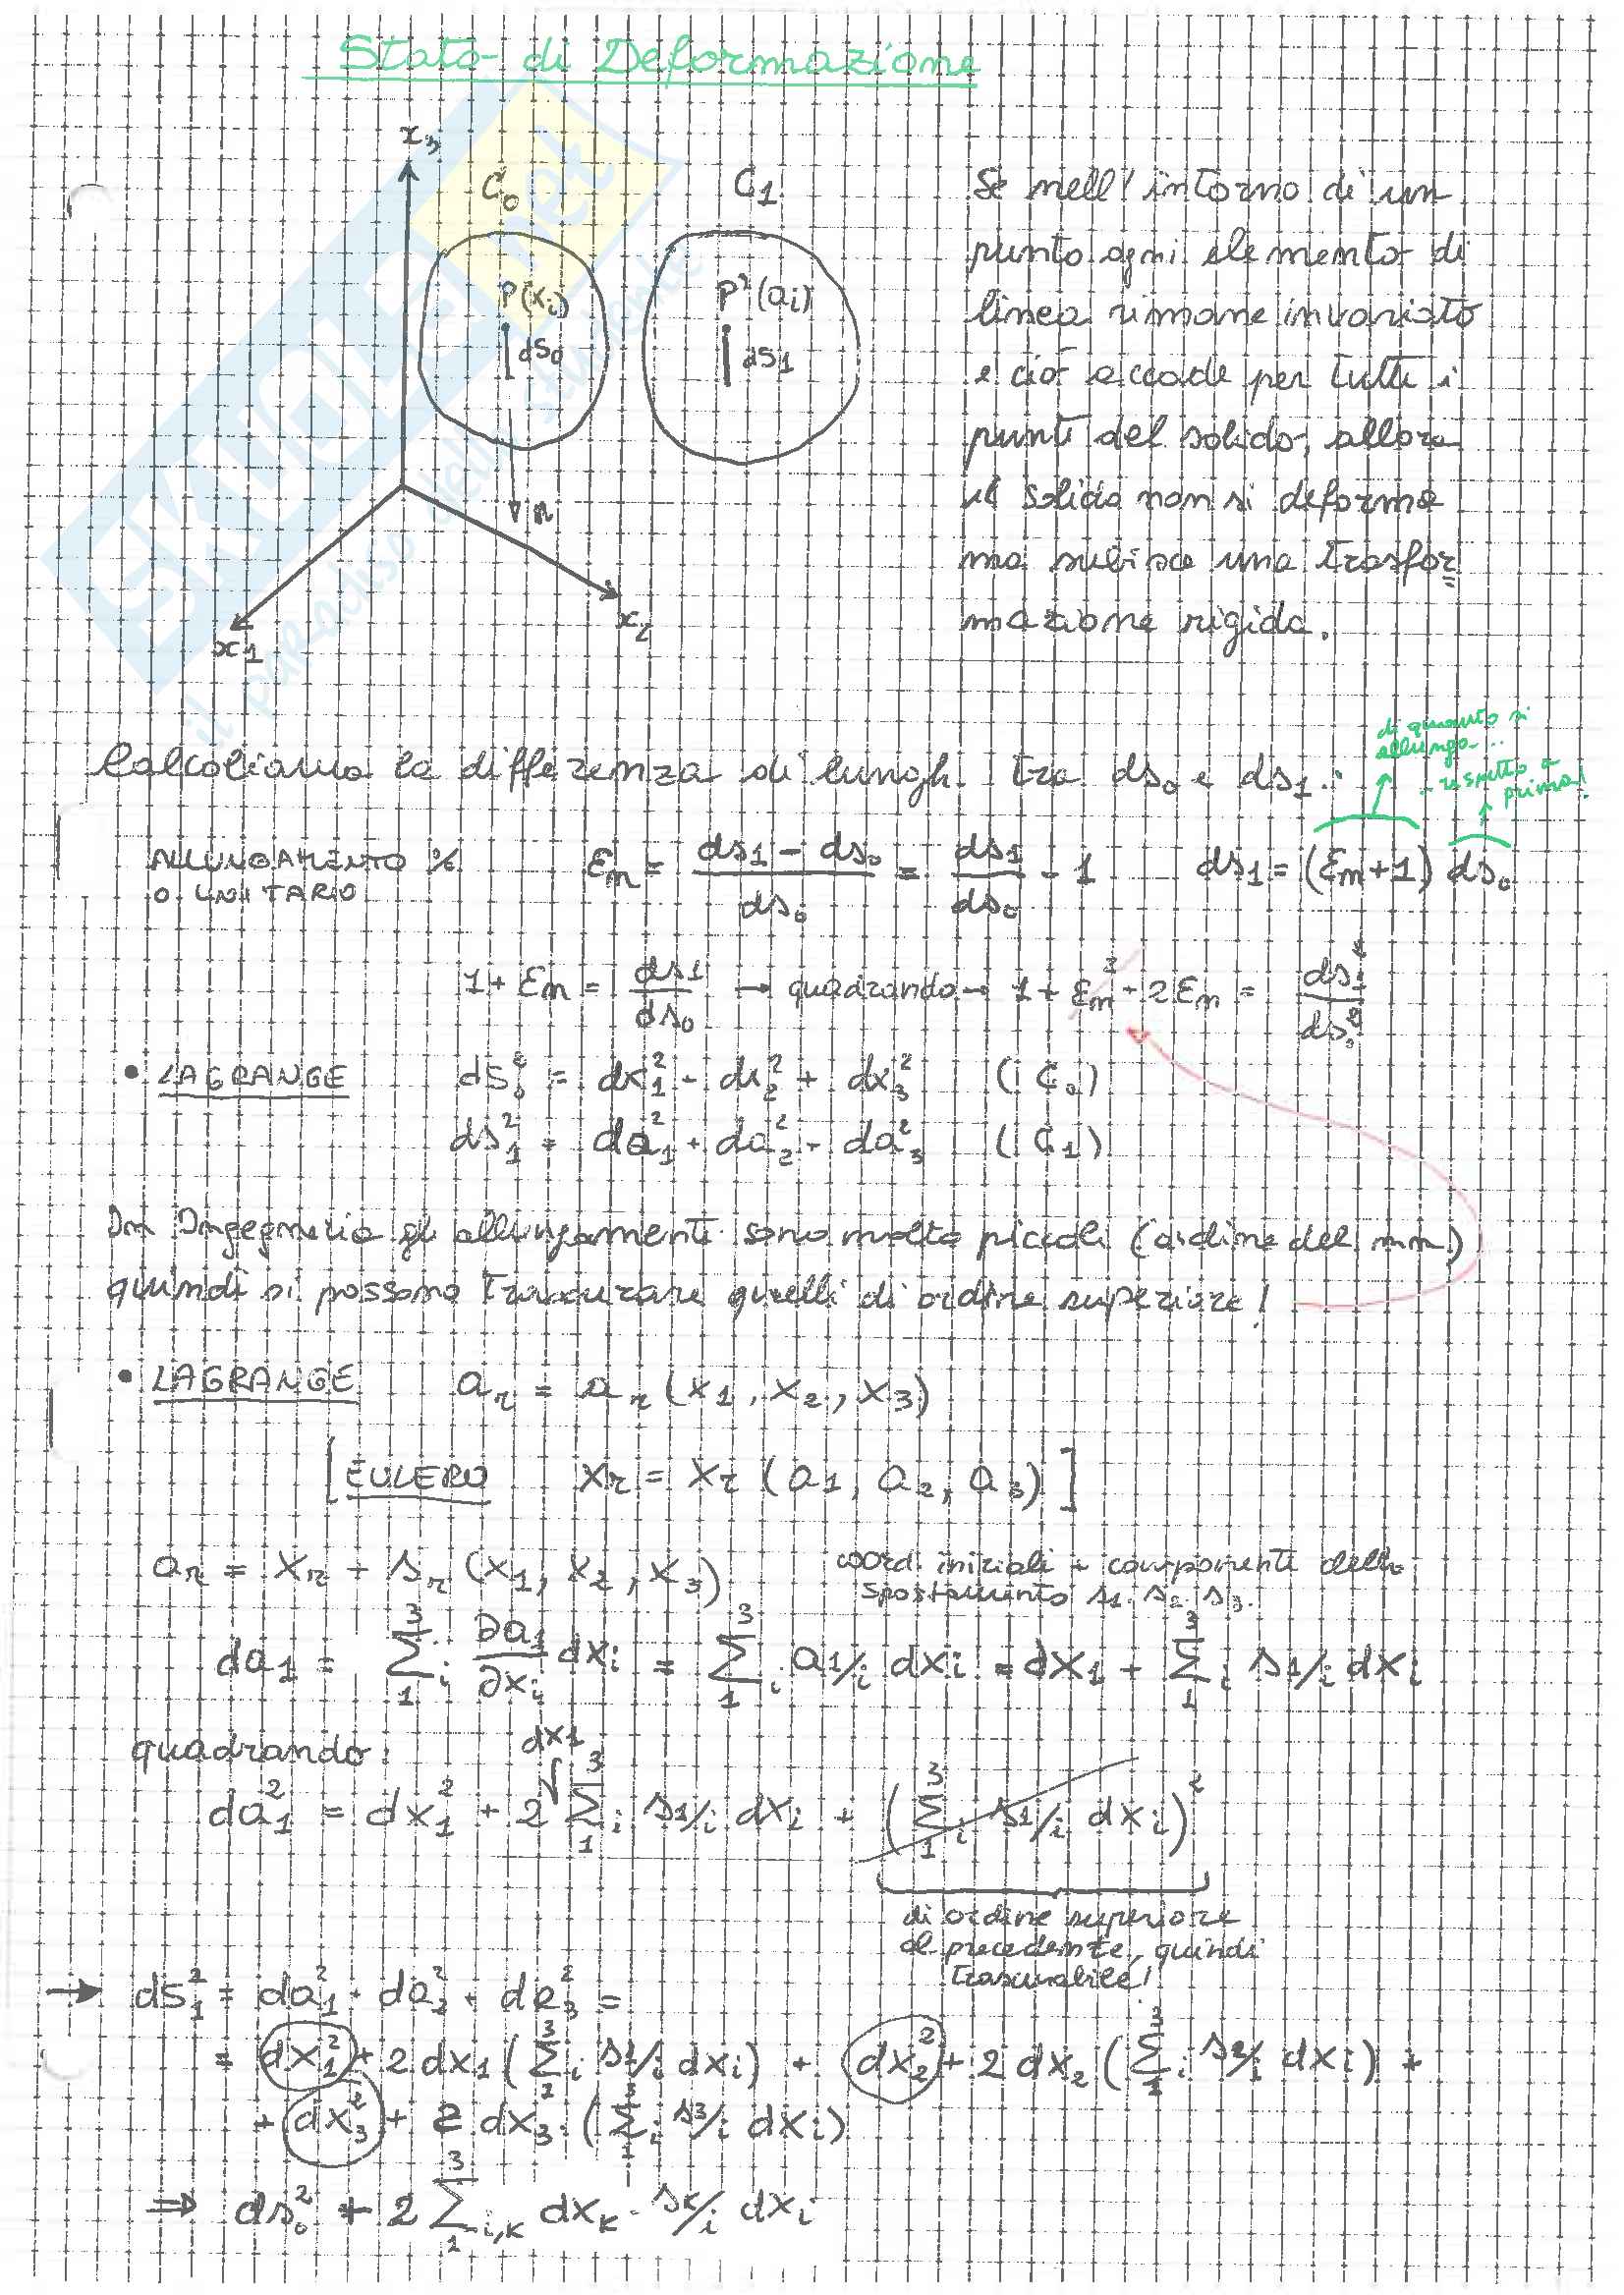 Stato di Deformazione
x₃
C₀
C₁
P(xᵢ)
P'(aᵢ)
ds₀
ds₁
n
x₁
x₂
Se nell'intorno di un
punto ogni elemento di
linea rimane invariato
e ciò accade per tutti i
punti del solido, allora
il solido non si deforma
ma subisce una trasfor
mazione rigida.
Calcoliamo la differenza di lungh. tra ds₀ e ds₁:
di quanto si
allunga...
...rispetto a
prima!
ALLUNGAMENTO %
O UNITARIO
εₙ = (ds₁ - ds₀)/ds₀ = ds₁/ds₀ - 1   ds₁ = (εₙ+1) ds₀
1 + εₙ = ds₁/ds₀ → quadrando → 1 + εₙ² + 2εₙ = ds₁²/ds₀²
• LAGRANGE   ds₀² = dx₁² + dx₂² + dx₃²   (C₀)
ds₁² = da₁² + da₂² + da₃²   (C₁)
In Ingegneria gli allungamenti sono molto piccoli (ordine del mm)
quindi si possono trascurare quelli di ordine superiore!
• LAGRANGE   aᵣ = aᵣ (x₁, x₂, x₃)
[EULERO   xᵣ = xᵣ (a₁, a₂, a₃)]
aᵣ = xᵣ + sᵣ (x₁, x₂, x₃)   coord. iniziali + componenti dello
spostamento s₁, s₂, s₃.
da₁ = Σ₁³ᵢ ∂a₁/∂xᵢ dxᵢ = Σ₁³ᵢ a₁/ᵢ dxᵢ = dx₁ + Σ₁³ᵢ s₁/ᵢ dxᵢ
quadrando:
dx₁
da₁² = dx₁² + 2 Σ₁³ᵢ s₁/ᵢ dxᵢ + (Σ₁³ᵢ s₁/ᵢ dxᵢ)²
di ordine superiore
al precedente, quindi
trascurabile!
→ ds₁² = da₁² + da₂² + da₃² =
= dx₁² + 2 dx₁ (Σ₁³ᵢ s₁/ᵢ dxᵢ) + dx₂² + 2 dx₂ (Σ₁³ᵢ s₂/ᵢ dxᵢ) +
+ dx₃² + 2 dx₃ · (Σ₁³ᵢ s₃/ᵢ dxᵢ)
⇒ ds₀² + 2 Σ₁³ᵢ,ₖ dxₖ · sₖ/ᵢ dxᵢ